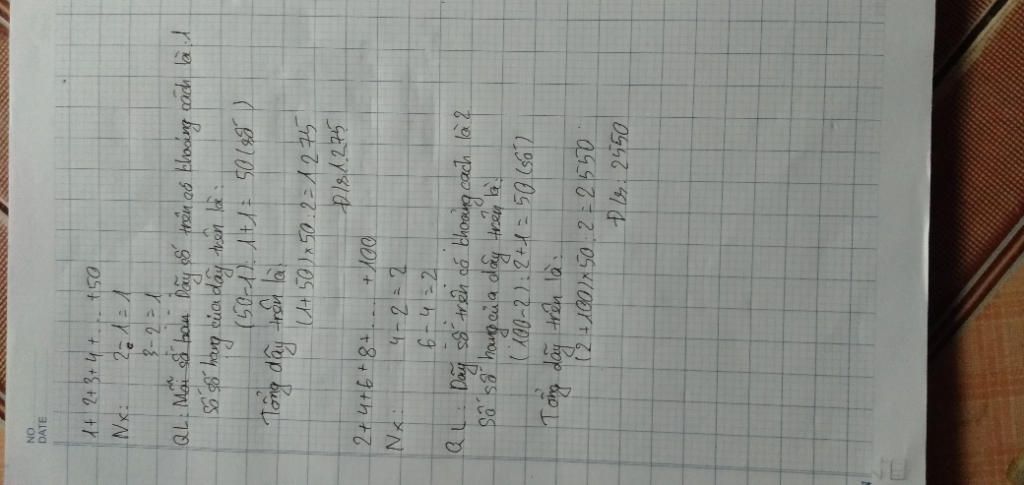 NO
DATE
1+ 2+3+4+.... +50
Nx: 2-1=1
3-2=1
QL: Dãy số trên có khoảng cách là 1
Số số hạng của dãy trên là:
(50-1):1+1= 50(số)
Tổng dãy trên là:
(1+50)×50:2=1275
Đ/s:1275
2+4+6+8+.... +100
Nx: 4-2=2
6-4=2
QL: Dãy số trên có khoảng cách là 2
Số số hạng của dãy trên là:
(100-2):2+1=50(số)
Tổng dãy trên là:
(2+100)×50:2=2550
Đ/s:2550